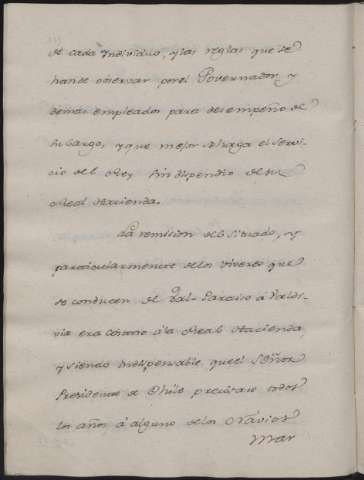 de cada Individuo, y las reglas que se
han de observar por el Governador, y
demas empleados para desempeño de
su Cargo, y que mejor se haga el Servi-
cio del Rey sin dispendio de su
Real Hacienda.
La remision del Situado, y
particularmente de los Viveres que
se conducen de Val-Paraiso á Valdi-
via era costoso á la Real Hacienda,
y siendo indispensable que el Señor
Presidente de Chile precisase todos
los años á alguno de los Navios
mar